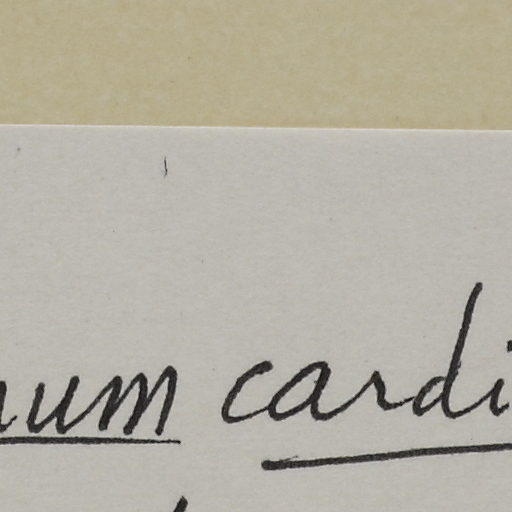 num cardi